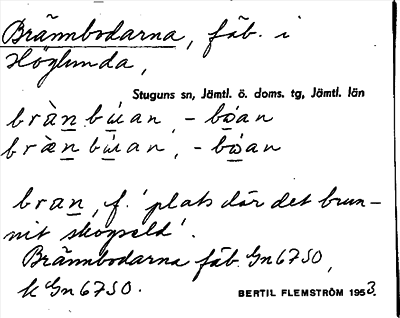 Brännbodarna, fäb. i
Höglunda,
Stuguns sn, Jämtl. ö. doms. tg, Jämtl. län
bràn bu̇́an, - bȯ́an
bràn bu̇́an, - bȯ́an
bran, f. 'plats där det brun-
nit skogseld'.
Brännbodarna fäb. Gn67SO,
k Gn67SO.
BERTIL FLEMSTRÖM 1953.